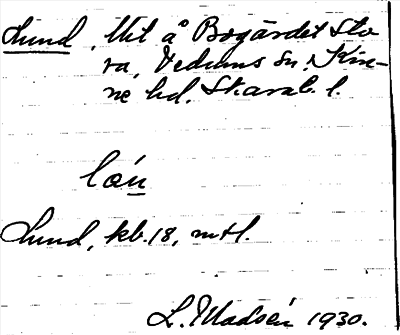 Lund, Utl å Bogärdet Sto
ra, Vedums sn. Kin-
ne hd. Skarab. l.
Lund, kb. 18, mtl.
L. Madsén 1930.